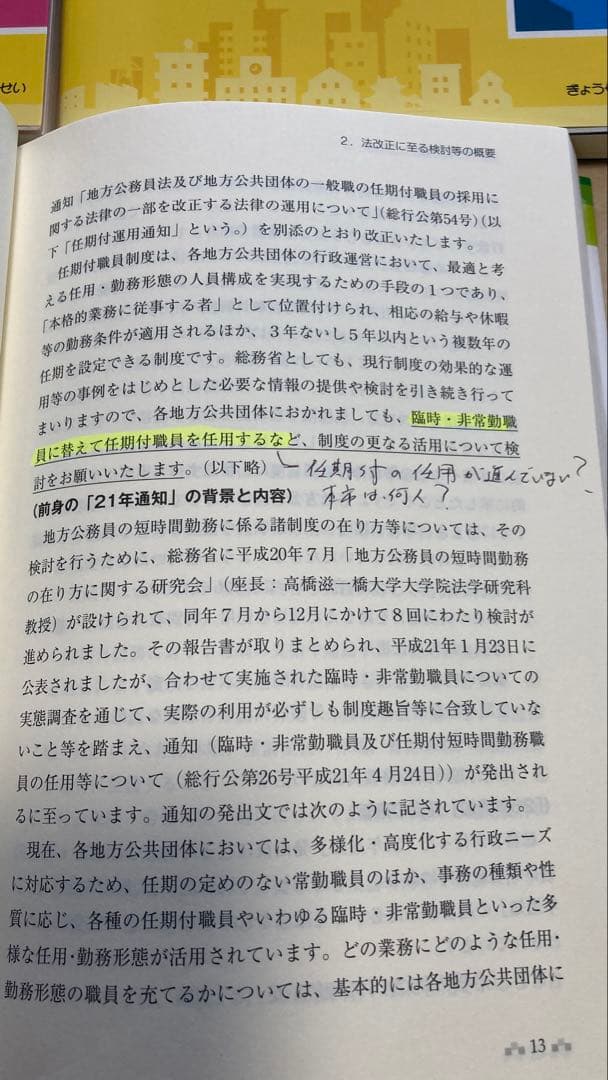 せい
きょうせ
2．法改正に至る検討等の概要
通知「地方公務員法及び地方公共団体の一般職の任期付職員の採用に
関する法律の一部を改正する法律の運用について」(総行公第54号)(以
下「任期付運用通知」という。）を別添のとおり改正いたします。
任期付職員制度は、各地方公共団体の行政運営において、最適と考
える任用・勤務形態の人員構成を実現するための手段の１つであり、
「本格的業務に従事する者」として位置付けられ、相応の給与や休暇
等の勤務条件が適用されるほか、３年ないし５年以内という複数年の
任期を設定できる制度です。総務省としても、現行制度の効果的な運
用等の事例をはじめとした必要な情報の提供や検討を引き続き行って
まいりますので、各地方公共団体におかれましても、臨時・非常勤職
員に替えて任期付職員を任用するなど、制度の更なる活用について検
討をお願いいたします。（以下略）
任期付の任用が進んでいない？
本市は何人？
(前身の「21年通知」の背景と内容)
地方公務員の短時間勤務に係る諸制度の在り方等については、その
検討を行うために、総務省に平成20年７月「地方公務員の短時間勤務
の在り方に関する研究会」（座長：高橋滋一橋大学大学院法学研究科
教授）が設けられて、同年７月から12月にかけて８回にわたり検討が
進められました。その報告書が取りまとめられ、平成21年１月23日に
公表されましたが、合わせて実施された臨時・非常勤職員についての
実態調査を通じて、実際の利用が必ずしも制度趣旨等に合致していな
いこと等を踏まえ、通知（臨時・非常勤職員及び任期付短時間勤務職
員の任用等について（総行公第26号平成21年４月24日））が発出され
るに至っています。通知の発出文では次のように記されています。
現在、各地方公共団体においては、多様化・高度化する行政ニーズ
に対応するため、任期の定めのない常勤職員のほか、事務の種類や性
質に応じ、各種の任期付職員やいわゆる臨時・非常勤職員といった多
様な任用・勤務形態が活用されています。どの業務にどのような任用・
勤務形態の職員を充てるかについては、基本的には各地方公共団体に
13